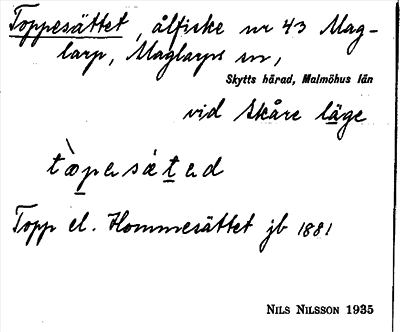 Toppesättet, ålfiske nr 43 Mag-
larp, Maglarps sn,
Skytts härad, Malmöhus län
vid Skåre läge
Topp el. Hommesättet jb 1881
NILS NILSSON 1935